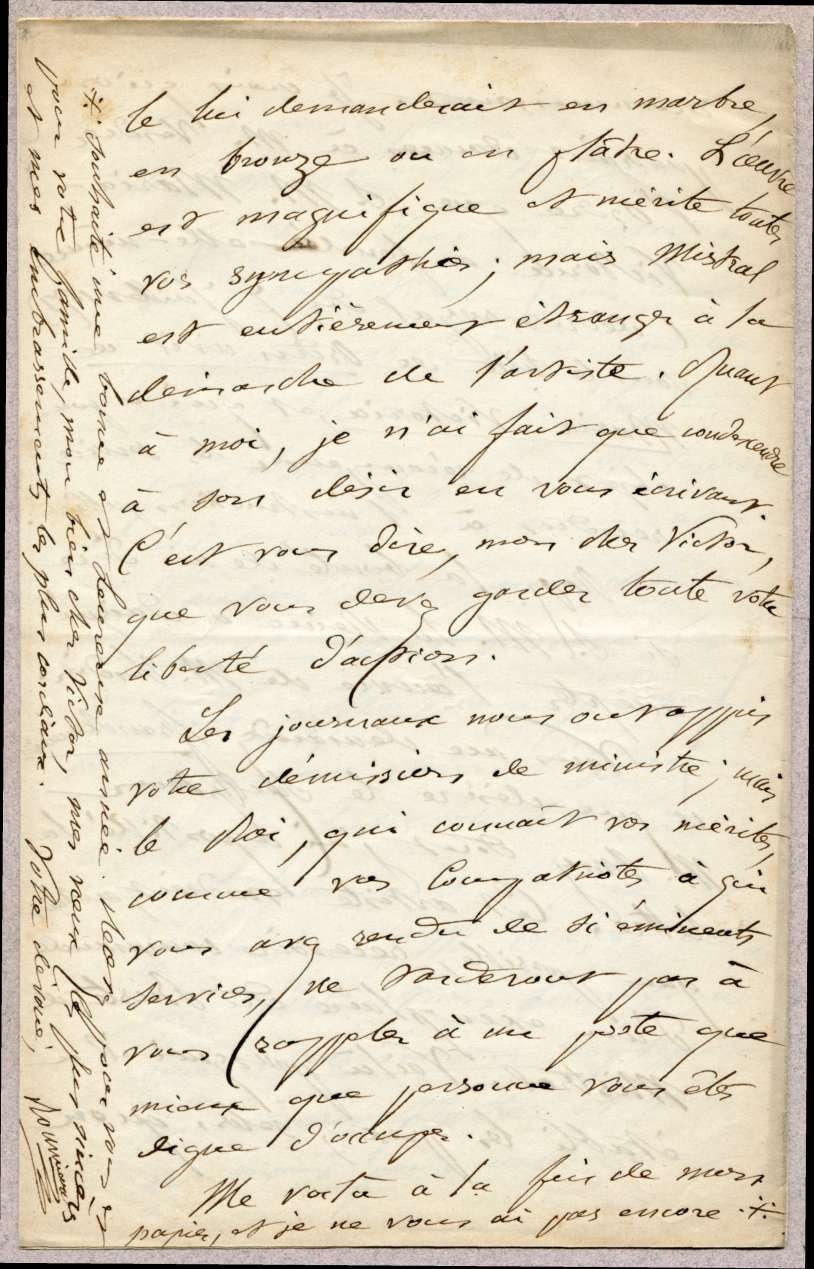 le lui demanderait en marbre,
en bronze ou en plâtre. L'œuvre
est magnifique et mérite toutes
vos sympathies; mais Mistral
est entièrement étranger à la
démarche de l'artiste. Quant
à moi, je n'ai fait que condescendre
à son désir en vous écrivant.
C'est vous dire, mon cher Victor,
que vous devez garder toute votre
liberté d'action.
Les journaux nous ont appris
votre démission de ministre; mais
le Roi, qui connaît vos mérites,
comme vos Compatriotes à qui
vous avez rendu de si éminents
services, ne tarderont pas à
vous rappeler à un poste que
mieux que personne vous êtes
digne d'occuper.
Me voilà à la fin de mon
papier, et je ne vous ai pas encore .+.
.+. souhaité une bonne et heureuse année. Recevez pour vous et
pour votre famille, mon bien cher Victor, mes vœux les plus sincères
et mes embrassements les plus cordiaux. Votre dévoué,